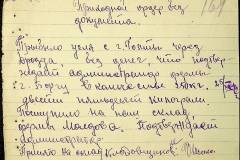 Приходной ордер без
документа.
Прибыло угля с г. Поти через
без денег, что подтвер-
ждает администратор фермы
г. Борщ в количестве 250 кг.
двести пятьдесят килограмм.
Поступило на наш склад.
ферма Молдова. Подтверждает
Администратор
Принял на склад Кладовщик